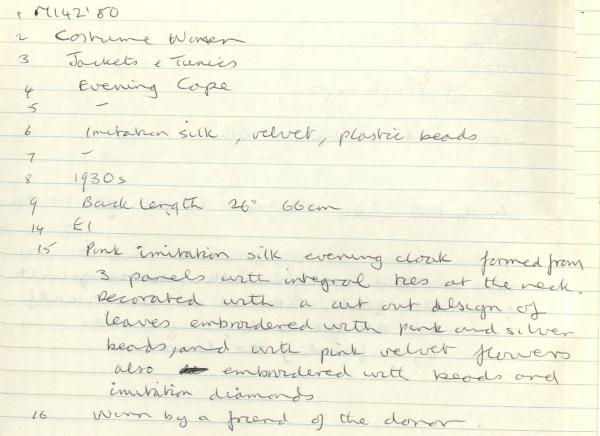 1 M142'80
2 Costume Women
3 Jackets & Tunics
4 Evening Cape
5 –
6 Imitation silk, velvet, plastic beads
7 –
8 1930s
9 Back length 26" 66cm
14 E1
15 Pink imitation silk evening cloak formed from
3 panels with integral ties at the neck.
Decorated with a cut out design of
leaves embroidered with pink and silver
beads, and with pink velvet flowers
also embroidered with beads and
imitation diamonds
16 Worn by a friend of the donor.